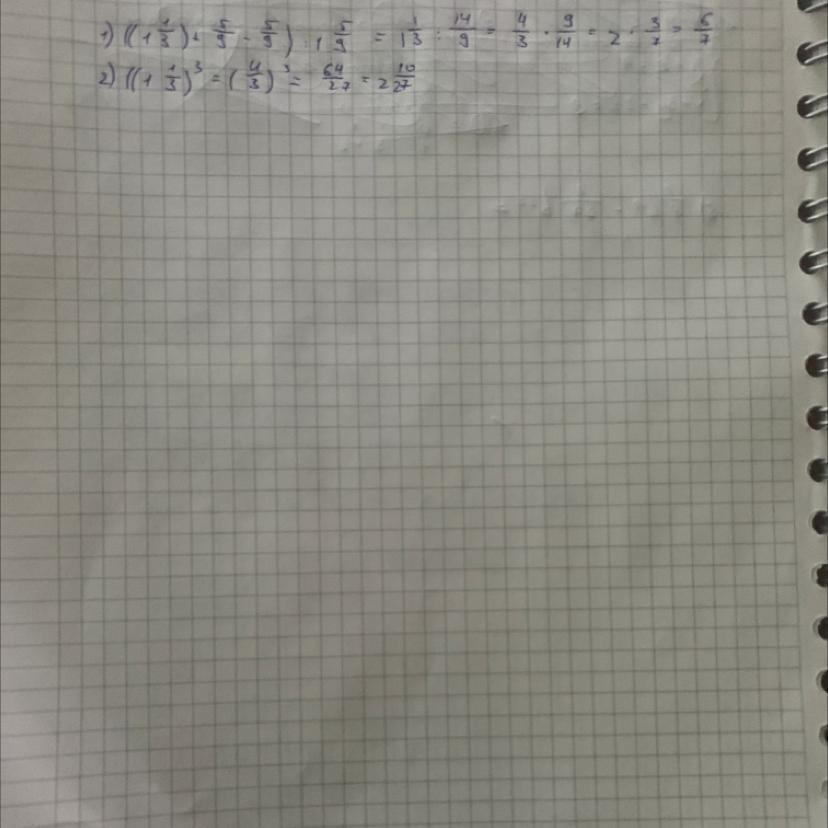 1) ((1 1/3) + 5/9 - 5/9) : 1 5/9 = 1 1/3 : 14/9 = 4/3 · 9/14 = 2 · 3/7 = 6/7
2) ((1 1/3)³ = (4/3)³ = 64/27 = 2 10/27